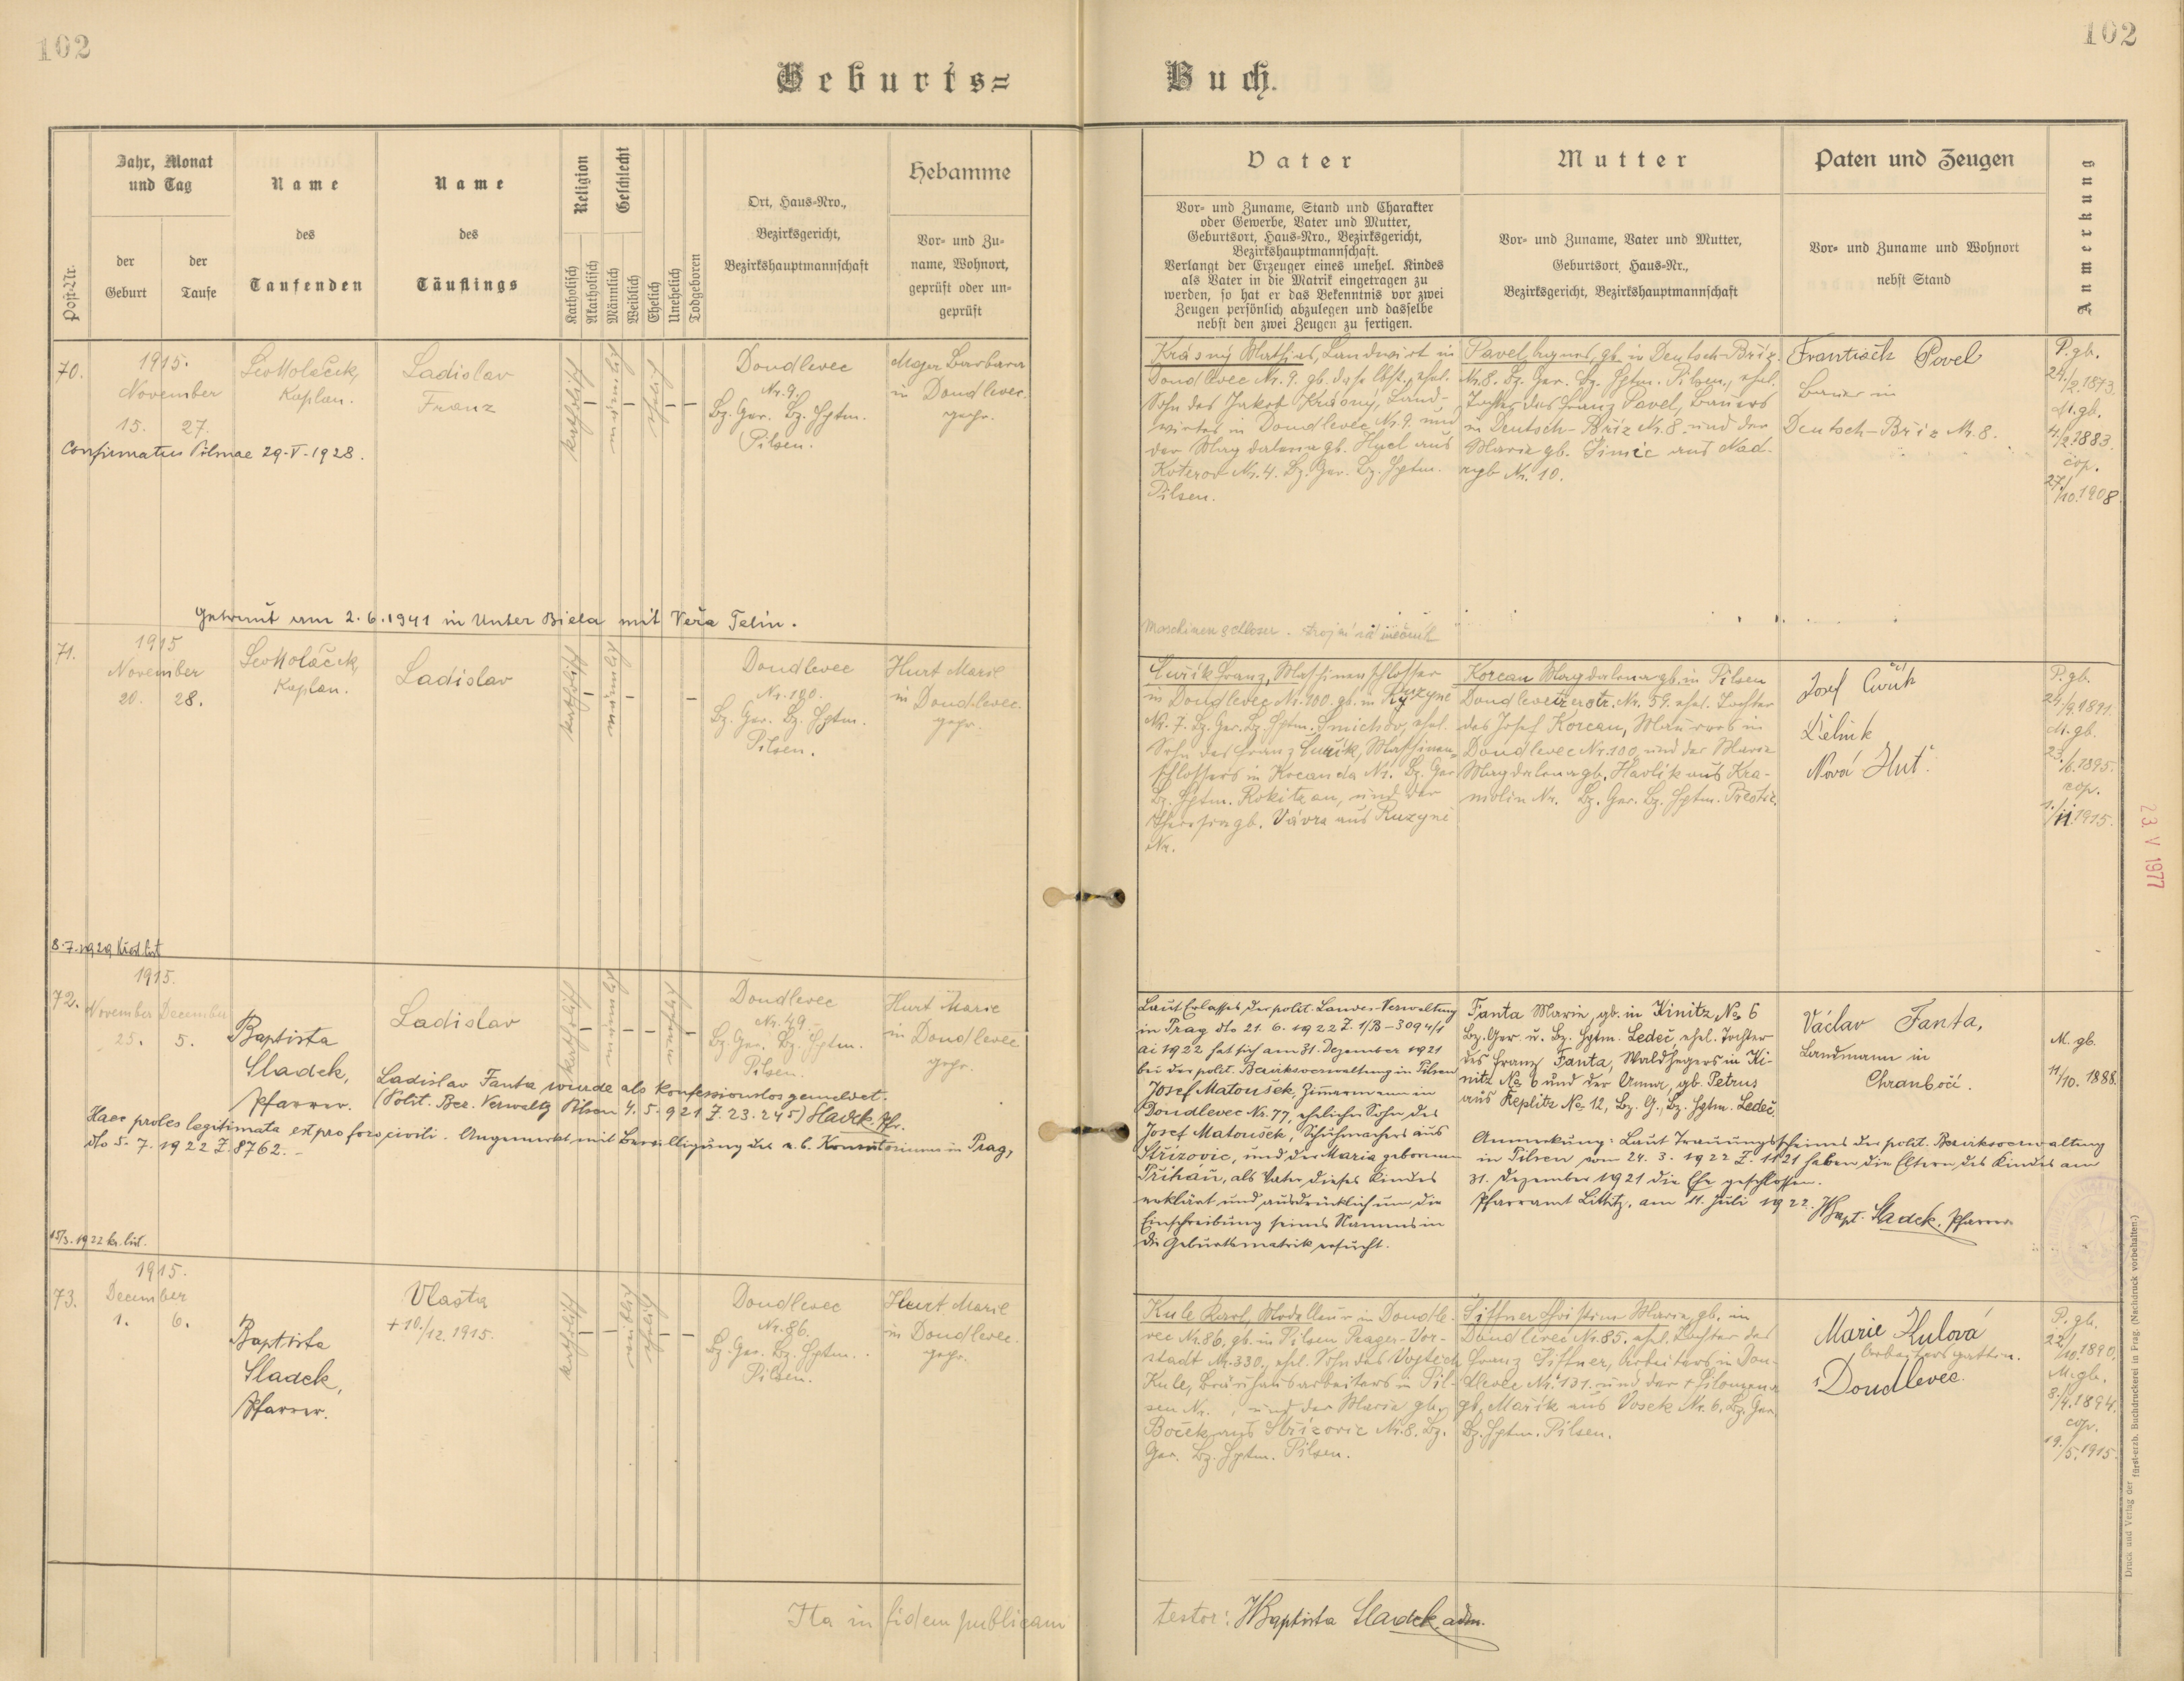 102
102
Geburts=
Buch.
Post-Nr.
Jahr, Monat
und Tag
der
Geburt
der
Taufe
Name
des
Taufenden
Name
des
Täuflings
Religion
Katholisch
Akatholisch
Geschlecht
Männlich
Weiblich
Ehelich
Unehelich
Todgeboren
Ort, Haus=Nro.,
Bezirksgericht,
Bezirkshauptmannschaft
Hebamme
Vor= und Zu=
name, Wohnort,
geprüft oder un=
geprüft
Vater
Vor= und Zuname, Stand und Charakter
oder Gewerbe, Vater und Mutter,
Geburtsort, Haus=Nro., Bezirksgericht,
Bezirkshauptmannschaft.
Verlangt der Erzeuger eines unehel. Kindes
als Vater in die Matrik eingetragen zu
werden, so hat er das Bekenntnis vor zwei
Zeugen persönlich abzulegen und dasselbe
nebst den zwei Zeugen zu fertigen.
Mutter
Vor= und Zuname, Vater und Mutter,
Geburtsort, Haus=Nr.,
Bezirksgericht, Bezirkshauptmannschaft
Paten und Zeugen
Vor= und Zuname und Wohnort
nebst Stand
Anmerkung
70.
1915.
November
15. 27.
Kaplan.
Ladislav
Franz
katholisch
männlich
ehelich
Doudlevec
Nr. 9.
Bz. Ger. Bz. Hptm.
Pilsen.
Majer Barbara
in Doudlevec.
gepr.
Confirmatus Pilsnae 29-V-1928.
Getraut am 2.6.1941 in Unter Biela mit Věra Telin.
Krásný Mathias, Landwirt in
Doudlevec Nr. 9. gb. daselbst, ehel.
Sohn des Jakob Krásný, Land-
wirtes in Doudlevec Nr. 9. und
der Magdalena gb. Hucl aus
Koterov Nr. 4. Bz. Ger. Bz. Hptm.
Pilsen.
Pavel Agnes, gb. in Deutsch-Bříz
Nr. 8. Bz. Ger. Bz. Hptm. Pilsen, ehel.
Tochter des Franz Pavel, Bauers
in Deutsch-Bříz Nr. 8. und der
Maria gb. Šimic aus Nad-
ryb Nr. 10.
František Pavel
Bauer in
Deutsch-Bříz Nr. 8.
P. gb.
24./2.1873.
M. gb.
4./2.1883.
cop.
27./10.1908.
71.
1915
November
20. 28.
Kaplan.
Ladislav
katholisch
männlich
Doudlevec
Nr. 100.
Bz. Ger. Bz. Hptm.
Pilsen.
Hurt Marie
in Doudlevec.
gepr.
8.7.1929 křest. list
Maschinenschlosser. strojní zámečník
Cuřík Franz, Maschinenschlosser
in Doudlevec Nr. 100. gb. in Ruzyně
Nr. 7. Bz. Ger. Bz. Hptm. Smichov, ehel.
Sohn des Franz Cuřík, Maschinen-
schlossers in Kocanda Nr. Bz. Ger.
Bz. Hptm. Rokitzan, und der
Theresia gb. Vávra aus Ruzyně
Nr.
Korean Magdalena gb. in Pilsen
Doudlevetzerstr. Nr. 59. ehel. Tochter
des Josef Korean, Maurers in
Doudlevec Nr. 100, und der Maria
Magdalena gb. Havlik aus Kra-
molin Nr. Bz. Ger. Bz. Hptm. Přestic.
Josef Cuřík
Dělník
Nová Huť
P. gb.
24./9.1891.
M. gb.
23./6.1895.
cop.
1./11.1915.
23. V 1977
72.
1915.
November December
25. 5.
Baptista
Sladek,
Pfarrer.
Ladislav
katholisch
männlich
unehelich
Doudlevec
Nr. 49.
Bz. Ger. Bz. Hptm.
Pilsen.
Hurt Marie
in Doudlevec
gepr.
Ladislav Fanta wurde als konfessionslos gemeldet.
(Polit. Bez. Verwaltg Pilsen 4.5.921 Z. 23.245) Sladek, Pfr.
Haec proles legitimata est pro foro civili. Angemerkt mit Bewilligung des e. b. Konsistoriums in Prag,
dto 5.7.1922 Z. 8762.
15/3.1922 kr. list.
Laut Erlasses der polit. Landes-Verwaltung
in Prag dto 21.6.1922 Z. 1/B-3094/1
ai 1922 hat sich am 31. Dezember 1921
bei der polit. Bezirksverwaltung in Pilsen
Josef Matoušek, Zimmermann in
Doudlevec Nr. 77, ehelicher Sohn des
Josef Matoušek, Schuhmachers aus
Střízovic, und der Maria geborenen
Přibáň, als Vater dieses Kindes
erklärt und ausdrücklich um die
Einschreibung seines Namens in
die Geburtsmatrik ersucht.
Fanta Marie, gb. in Kinitz No 6
Bz. Ger. u. Bz. Hptm. Ledeč, ehel. Tochter
des Franz Fanta, Waldhegers in Ki-
nitz No 6 und der Anna, gb. Petrus
aus Keplitz No 12, Bz. G., Bz. Hptm. Ledeč.
Anmerkung: Laut Trauungsscheines der polit. Bezirksverwaltung
in Pilsen vom 24.3.1922 Z. 1121 haben die Eltern des Kindes am
31. Dezember 1921 die Ehe geschlossen.
Pfarramt Littitz, am 11. Juli 1922. JBapt. Sladek, Pfarrer
Václav Fanta,
Landmann in
Chranboží.
M. gb.
11/10.1888.
73.
1915.
December
1. 6.
Baptista
Sladek,
Pfarrer.
Vlasta
+ 10./12.1915.
katholisch
weiblich
ehelich
Doudlevec
Nr. 86.
Bz. Ger. Bz. Hptm.
Pilsen.
Hurt Marie
in Doudlevec.
gepr.
Kule Karl, Modelleur in Doudle-
vec Nr. 86, gb. in Pilsen Prager-Vor-
stadt Nr. 330., ehel. Sohn des Vojtěch
Kule, Bräuhausarbeiters in Pil-
sen Nr. , und der Maria gb.
Boček aus Střízovic Nr. 8. Bz.
Ger. Bz. Hptm. Pilsen.
Siffner Christine Maria, gb. in
Doudlevec Nr. 85. ehel. Tochter des
Franz Siffner, Arbeiters in Dou-
dlevec Nr. 131. und der + Filomena
gb. Mařík aus Vosek Nr. 6. Bz. Ger.
Bz. Hptm. Pilsen.
Marie Kulová
Arbeitersgattin.
Doudlevec.
P. gb.
22./10.1890.
M. gb.
3./4.1894.
cop.
19./5.1915.
Ita in fidem publicam
testor: JBaptista Sladek, adm.
Druck und Verlag der fürst-erzb. Buchdruckerei in Prag. (Nachdruck vorbehalten.)